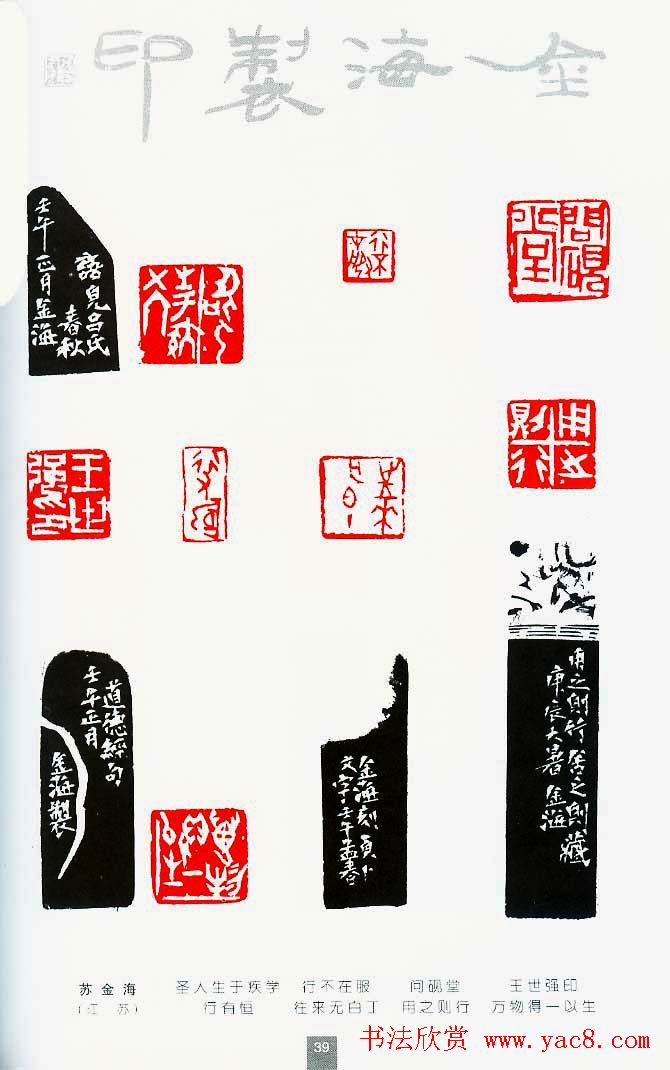 金海製印
語見呂氏
春秋
壬午正月金海
問硯堂
用之則行
王世強印
道德經句
壬午正月
金海製
金海刻頁卜
文字壬午孟春
用之則行舍之則藏
庚辰大暑金海
苏金海
(江苏)
圣人生于疾学
行有恒
行不在服
往来无白丁
问砚堂
用之则行
王世强印
万物得一以生
39
书法欣赏 www.yac8.com